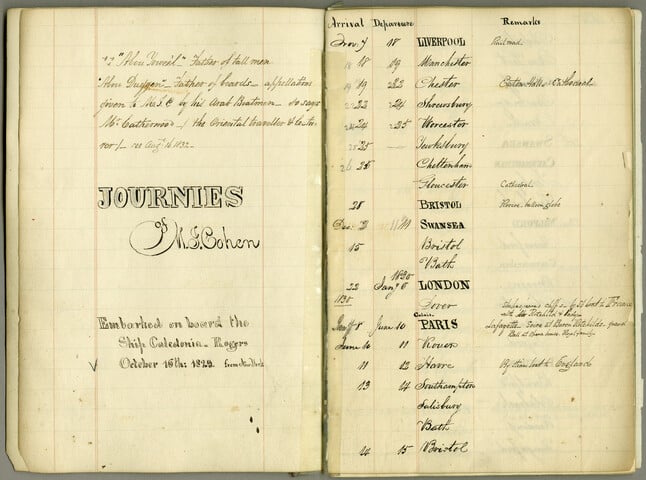 "Abou Toweel" Father of tall men
"Abou Duggen" Father of beards appellations
given to by his Arab Boatmen so says
Mr Catherwood the Oriental traveller & lectu-
rer see Augt 16. 1832.
JOURNIES
of
M.I. Cohen
Embarked on board the
Ship Caledonia Rogers
October 16th: 1829. from New York
Arrival Departure Remarks
Nov. 7 18 LIVERPOOL Railroad
18 19 Manchester
19 22 Chester Eaton Hall Cathedral
22 24 Shrewsbury
24 25 Worcester
25 — Tewksbury
25 Cheltenham
Gloucester Cathedral
28 BRISTOL
Dec. SWANSEA
15 Bristol
Bath
1830
22 Jany 6 LONDON
1830 Dover Shakespeare's cliff by St boat to France
Calais with
Jany 8 June 10 PARIS Lafayette Soiree at Baron grand
Ball at
June 10 11 Rouen
11 12 Havre By steam boat to England
13 14 Southampton
Salisbury
Bath
14 15 Bristol